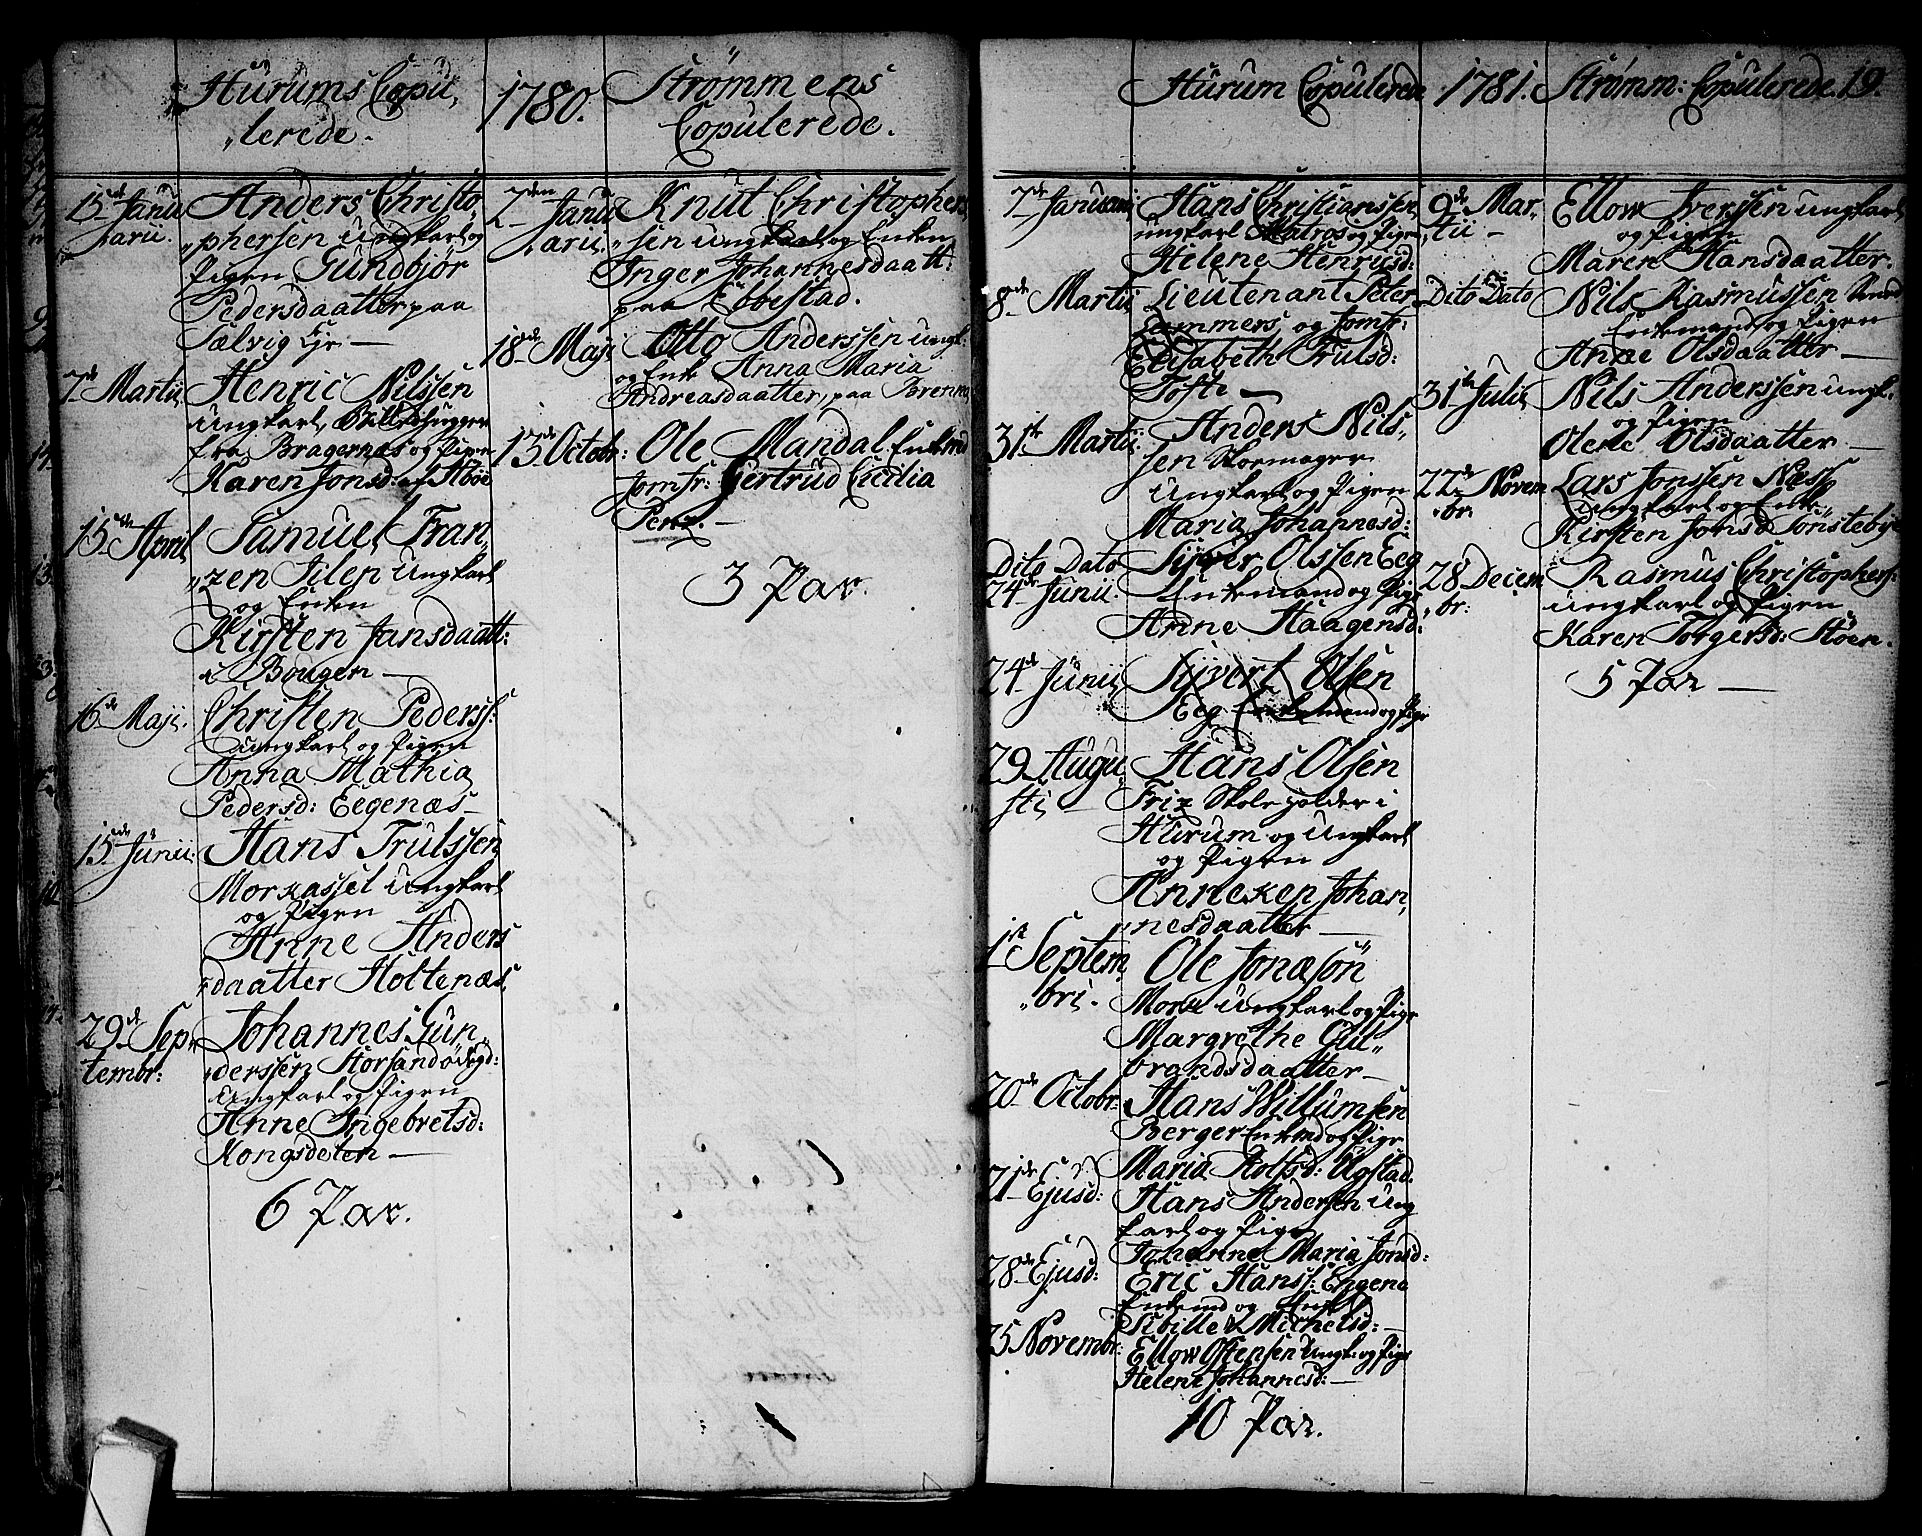 Hurums Copu,
„lerede.
15de Janu
„arii.
Anders Christo
„phersen Ungkarl og
Pigen Gundbjør
Pedersdaatter paa
Sælvig Eje —
7de Martii
Henric Nilssen
Ungkarl, Billedhugger
fra Bragernæs og Pigen
Karen Jonsd: af Aböe
15de April
Samuel Fran,
„zen Silen Ungkarl
og Enken
Kirsten Jansdaatt:
i Bougen —
16de Maji.
Christen Pederss:
Ungkarl og Pigen
Anna Mathia
Pedersd: Eegenæs —
15de Junii:
Hans Trulssen
Morkassel Ungkarl
og Pigen
Anne Anders
„daatter Holtenæs
29de Sep,
tembr:
Johannes Gun„
„derssen Storsand
Ungkarl og Pigen
Anne Ingebretsd:
Kongsdelen —
6 Par.
1780.
Strømmens
Copulerede.
7den Janu
„arii.
Knut Christophers
„sen Ungkarl og Enken
Inger Johannesdaatt:
paa Ebbestad.
18de Maji
Otto Anderssen Ungk:
og Enke Anna Maria
Andreasdaatter, paa Brenna
13de Octobr:
Ole Mandal Enkemd
Jomfr: Gertrud Cicilia
Penz. —
3 Par.
Hurum Copulerede
7de Januarii
Hans Christianssen
Ungkarl Matros og Pige
Helene Henricsd:
8de Martii
Lieutenant Peter
Lemmers og Jomfr:
Elisabeth Trulsd:
Tofte —
31te Martii
Anders Nils„
sen Skomager
Ungkarl og Pigen
Maria Johannesd:
Dito Dato
24de Junii.
Sijver Olssen Eeg
Enkemand og Pige
Anne Haagensd:
24de Junii
Sijvert Olsen
Eeg Enkemand og Pige
29 Augu
sti
Hans Olsen
Friz Skoleholder i
Hurum og Ungkarl
og Pigen
Anneken Johan,
„nesdaatter —
1te Septem,
„bri.
Ole Jonæsön
Mork Ungkarl og Pige
Margrethe Gul„
brandsdaatter —
20de Octobr:
Hans Willumsen
Berger Enkemd og Pige
Maria Rolfsd:
21de Ejusd:
Hans Andersen Ung
karl og Pige
Johanne Maria Jonsd:
28de Ejusd:
Eric Hanss: Engene
Enkemd og Enke
Sibille Michelsd: —
25 Novembr:
Ellow Ostensen Ungk: og Pige
Helene Johannesd: —
10 Par.
1781.
Strømm: Copulerede. 19.
9de Mar„
„tii —
Ellow Iverssen Ungkarl
og Pigen
Maren Hansdaatter.
Dito Dato
Nils Rasmussen
Enkemand og Pigen
Anne Olsdaatter —
31te Julii
Nils Anderssen Ungk.
og Pigen
Olene Olsdaatter —
22de Novem
„br.
Lars Jonssen Ness
Ungkarl og Enke
Kirsten Jonsd: Tonstebye
28 Decem
„br:
Rasmus Christophers:
Ungkarl og Pigen
Karen Torgersd: Støen.
5 Par —